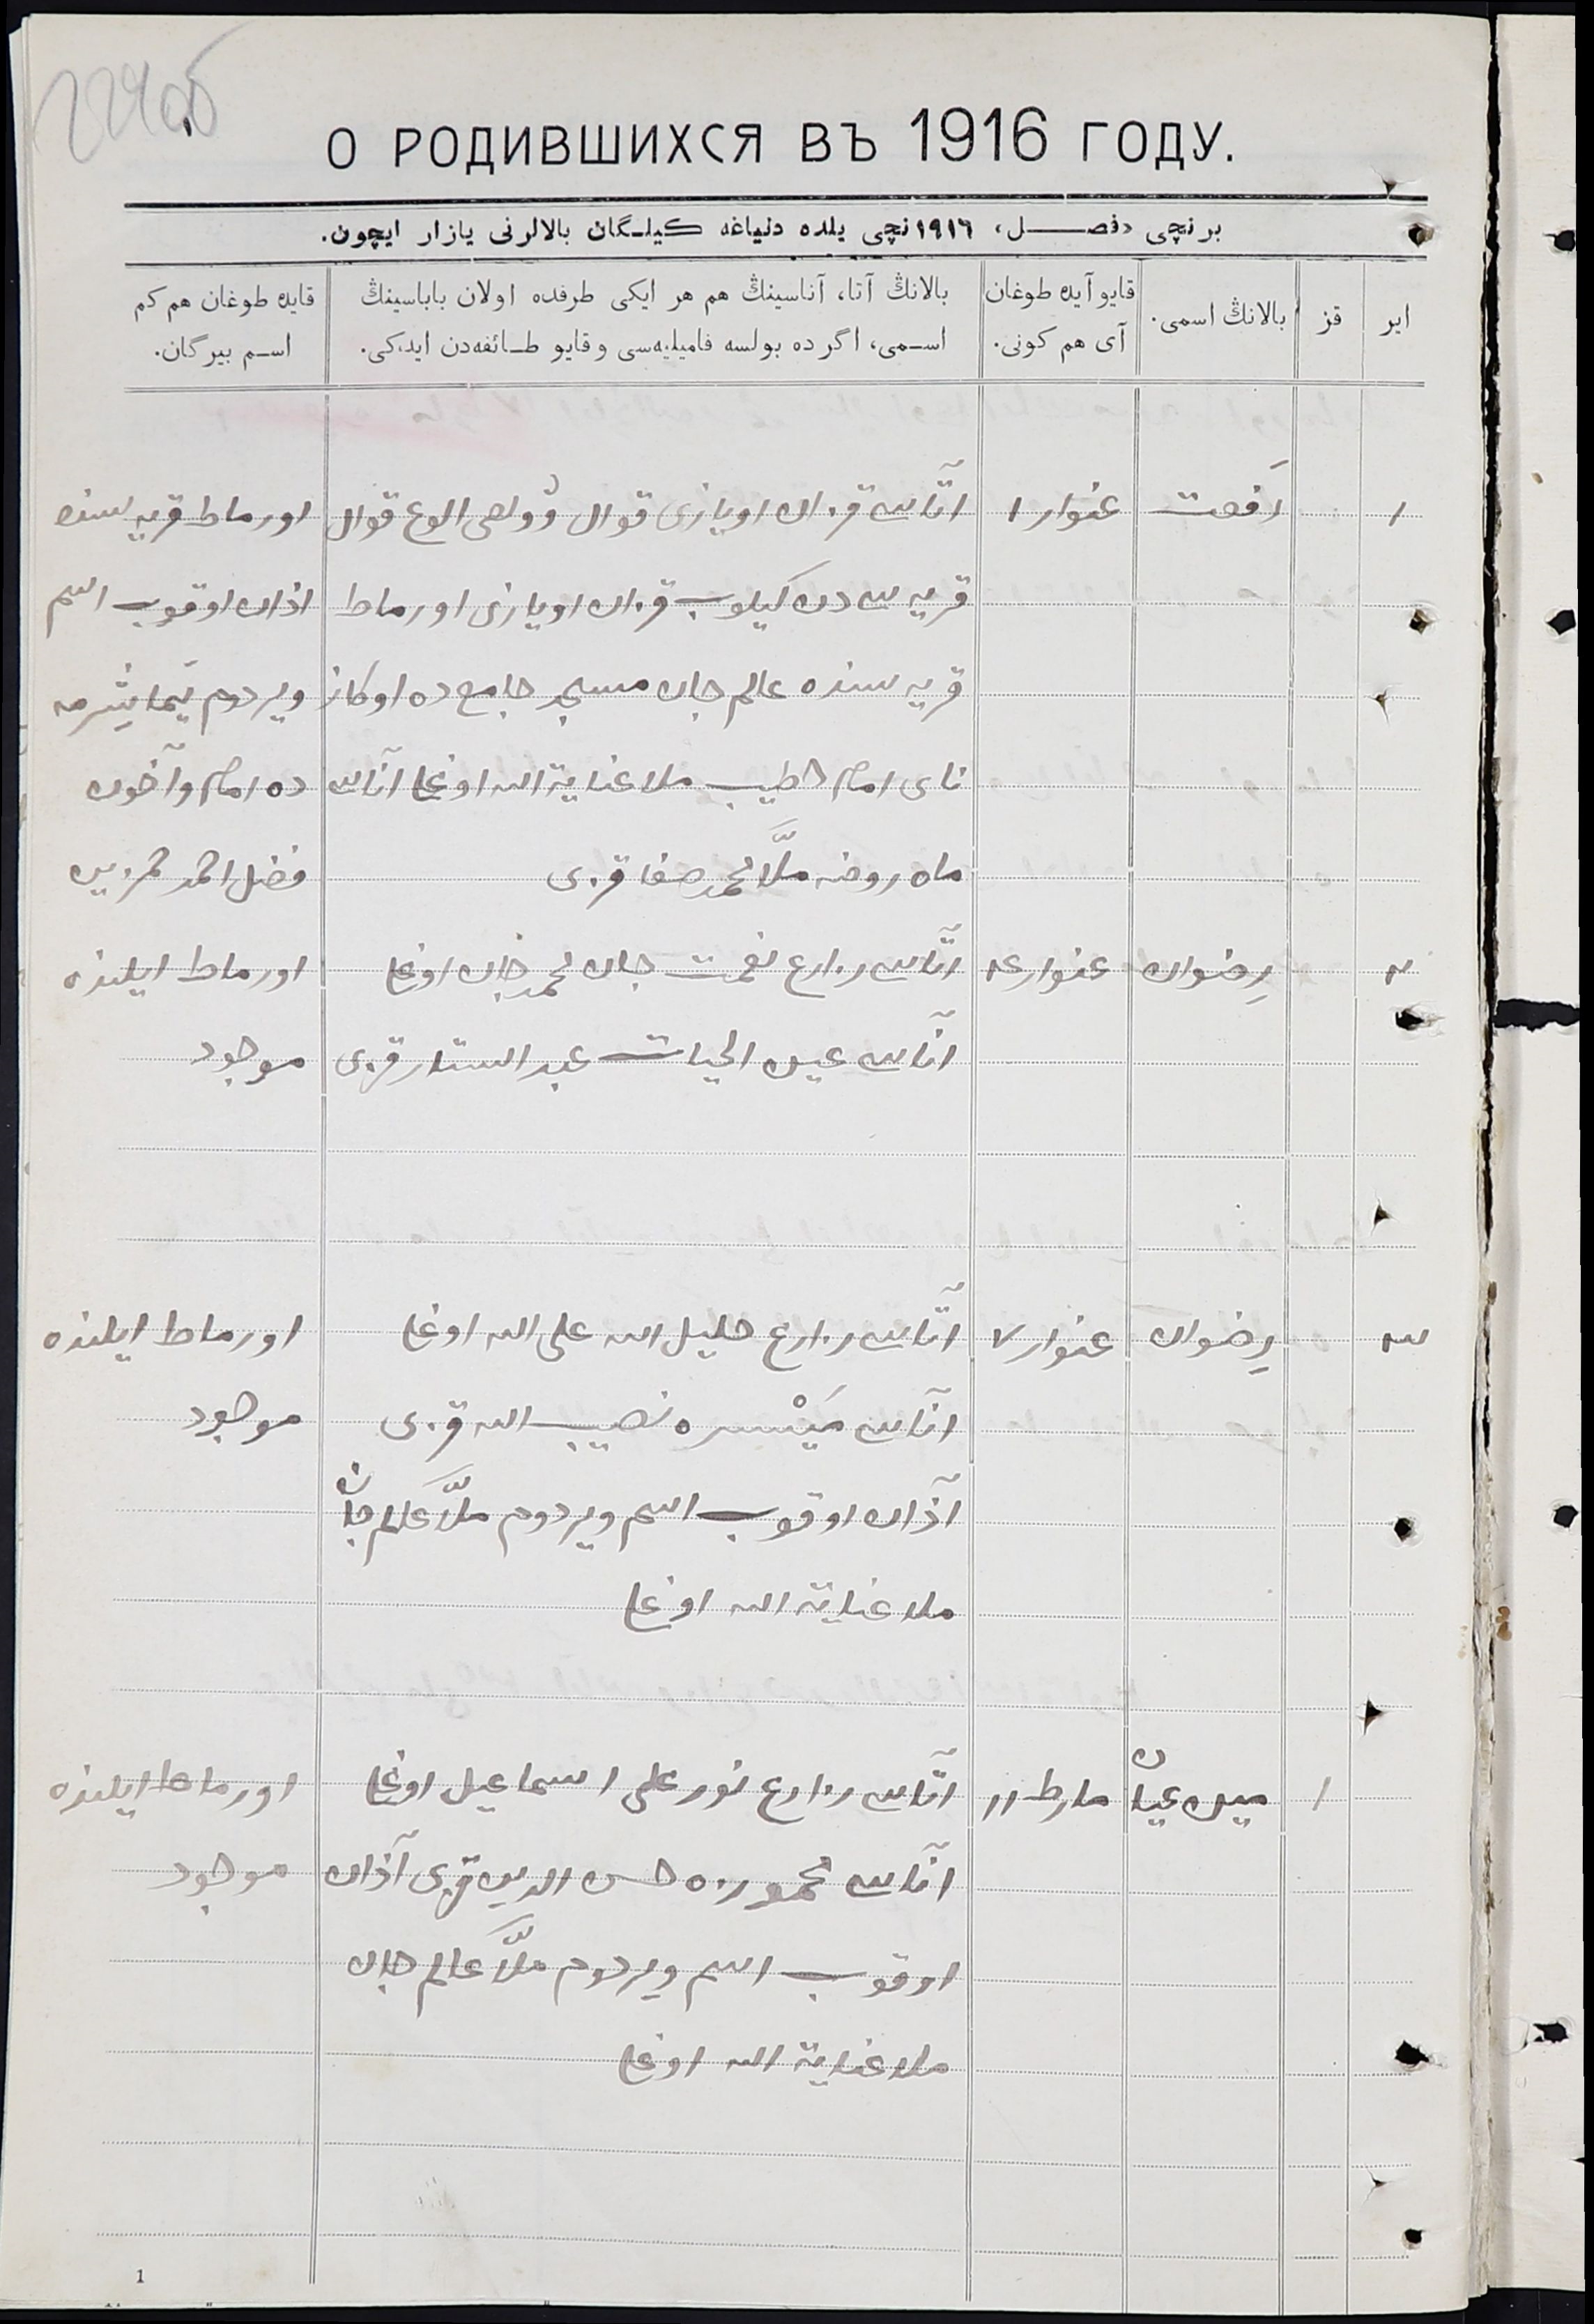 224об
О РОДИВШИХСЯ ВЪ 1916 ГОДУ.
برنچی «فصل»، ١٩١٦نچی یلده دنیاغه کیلگان بالالرنی یازار ایچون.
ایر
قز
بالانڭ اسمی.
قایو آیده طوغان
آی هم کونی.
بالانڭ آتا، آناسینڭ هم هر ایکی طرفده اولان باباسینڭ
اسمی، اگر ده بولسه فامیلیه‌سی و قایو طائفه‌دن ایدکی.
قایده طوغان هم کم
اسم بیرگان.
١ رَفعت غنوار ١ آتاسی قزان اویازی قوال الوغ قوال اورماط قریه سنده
قریه سی دن کیلوب قزان اویازی اورماط اذان اوقوب اسم
قریه سنده عالم جان مسجد جامع ده اوکاز ویردوم
نای امام خطیب ملا عنایة الله اوغلی آناسی ده امام و آخون
ماه روضه ملّا محمد صفا قزی فضل احمد
٢ رِضوان غنوار ٤ آتاسی زارع نعمت جان محمد جان اوغلی اورماط ایلنده
آناسی عین الحیات عبد الستار قزی موجود
٣ رِضوان غنوار ٧ آتاسی زارع خلیل الله علی الله اوغلی اورماط ایلنده
آناسی مَیْسره نصیب الله قزی موجود
آذان اوقوب اسم ویردوم ملّا عالم جان
ملا عنایة الله اوغلی
١ مارط ١١ آتاسی زارع نور علی اسماعیل اوغلی اورماط ایلنده
آناسی محموزه حسن الدین قزی آذان موجود
اوقوب اسم ویردوم ملّا عالم جان
ملا عنایة الله اوغلی
1